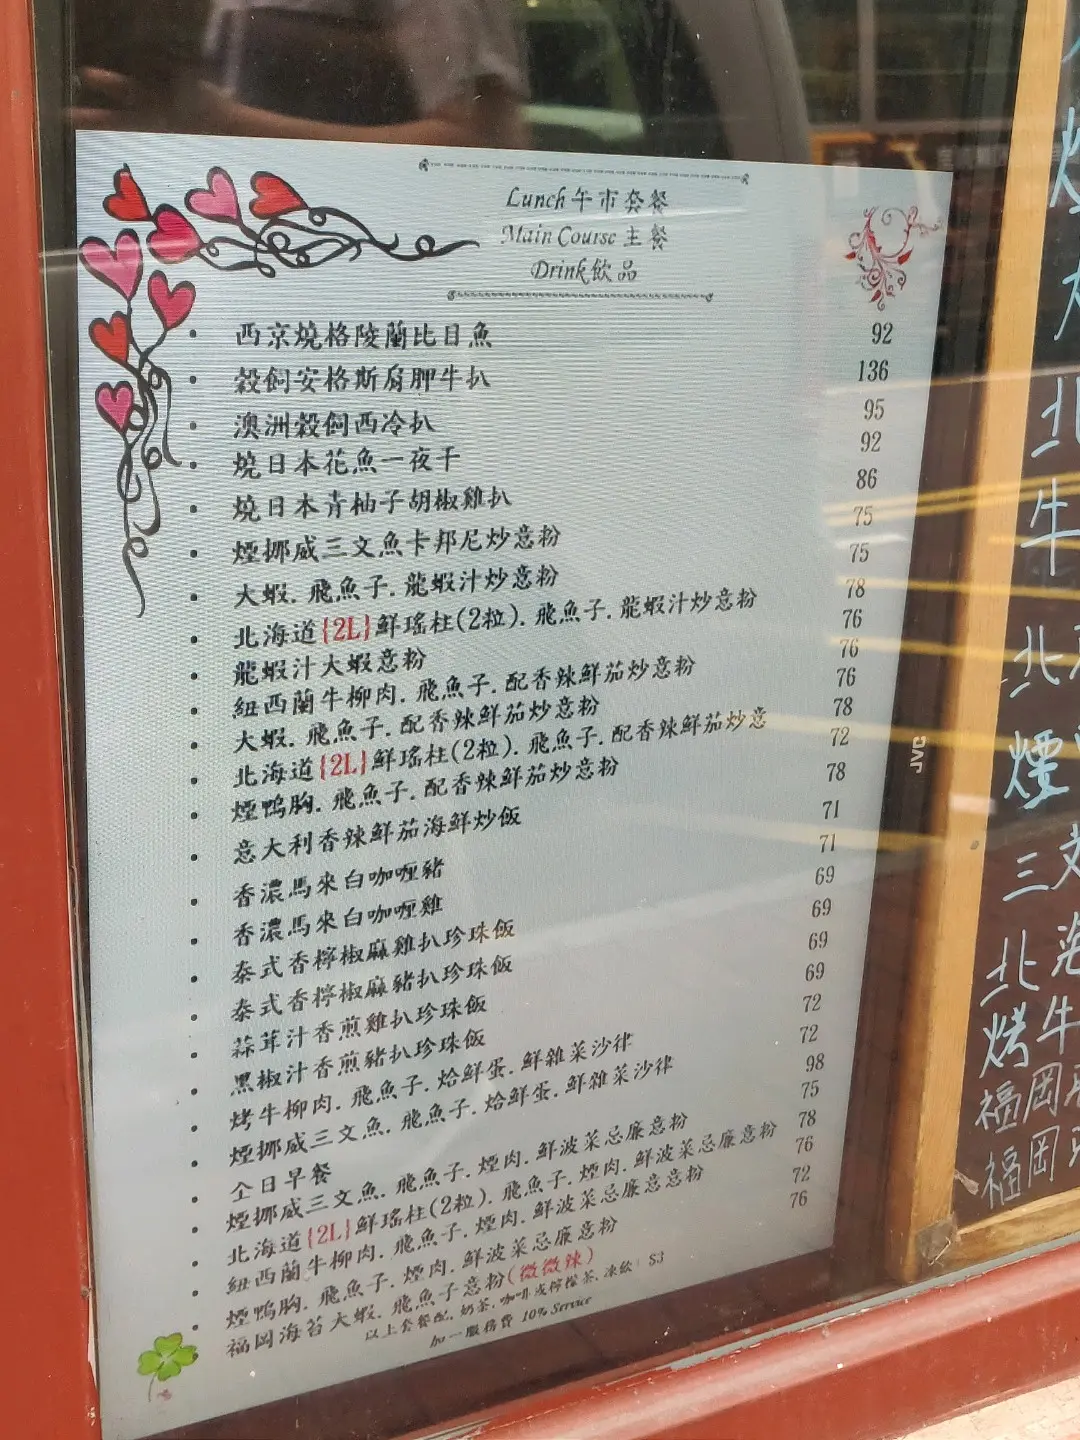 Lunch 午市套餐
Main Course 主餐
Drink飲品
西京燒格陵蘭比目魚 92
穀飼安格斯肩胛牛扒 136
澳洲穀飼西冷扒 95
燒日本花魚一夜干 92
燒日本青柚子胡椒雞扒 86
煙挪威三文魚卡邦尼炒意粉 75
大蝦. 飛魚子. 龍蝦汁炒意粉 75
北海道{2L}鮮瑤柱(2粒). 飛魚子. 龍蝦汁炒意粉 78
龍蝦汁大蝦意粉 76
紐西蘭牛柳肉. 飛魚子. 配香辣鮮茄炒意粉 76
大蝦. 飛魚子. 配香辣鮮茄炒意粉 76
北海道{2L}鮮瑤柱(2粒). 飛魚子. 配香辣鮮茄炒意 78
煙鴨胸. 飛魚子. 配香辣鮮茄炒意粉 72
意大利香辣鮮茄海鮮炒飯 78
香濃馬來白咖喱豬 71
香濃馬來白咖喱雞 71
泰式香檸椒麻雞扒珍珠飯 69
泰式香檸椒麻豬扒珍珠飯 69
蒜茸汁香煎雞扒珍珠飯 69
黑椒汁香煎豬扒珍珠飯 69
烤牛柳肉. 飛魚子. 烚鮮蛋. 鮮雜菜沙律 72
煙挪威三文魚. 飛魚子. 烚鮮蛋. 鮮雜菜沙律 72
全日早餐 98
煙挪威三文魚. 飛魚子. 煙肉. 鮮波菜忌廉意粉 75
北海道{2L}鮮瑤柱(2粒). 飛魚子. 煙肉. 鮮波菜忌廉意粉 78
紐西蘭牛柳肉. 飛魚子. 煙肉. 鮮波菜忌廉意意粉 76
煙鴨胸. 飛魚子. 煙肉. 鮮波菜忌廉意粉 72
福岡海苔大蝦. 飛魚子意粉(微微辣) 76
以上套餐配. 奶茶. 咖啡或檸檬茶. 凍飲: $3
加一服務費 10% Service
JVC
北
牛
北
煙
三文
北海
烤牛
福岡
福岡